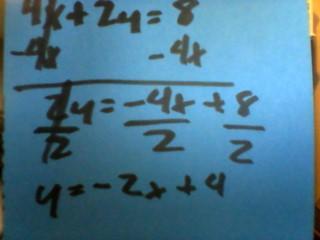 4x + 2y = 8
-4x -4x
2y = -4x + 8
2 2 2
y = -2x + 4